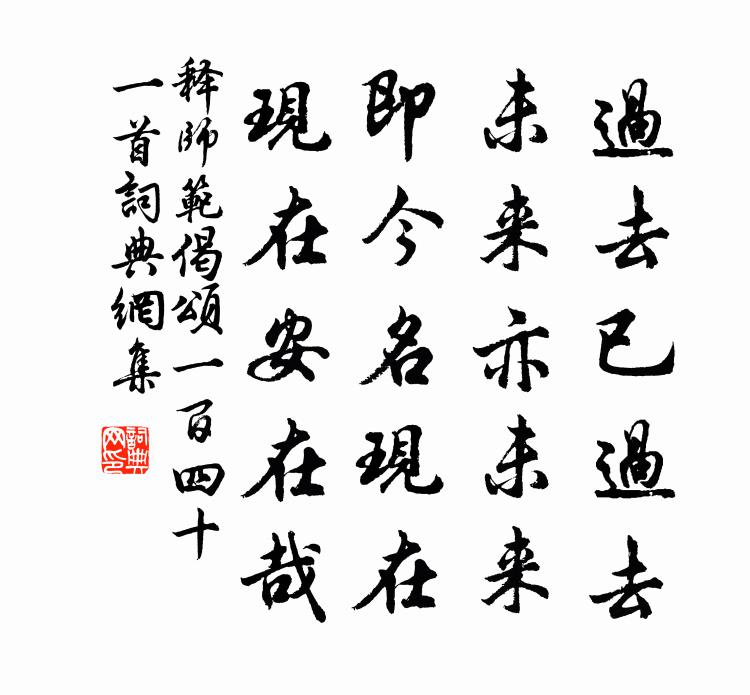 過去已過去
未来亦未来
即今名現在
現在安在哉
释師範偈頌一百四十
一首詞典網集
詞典
网印